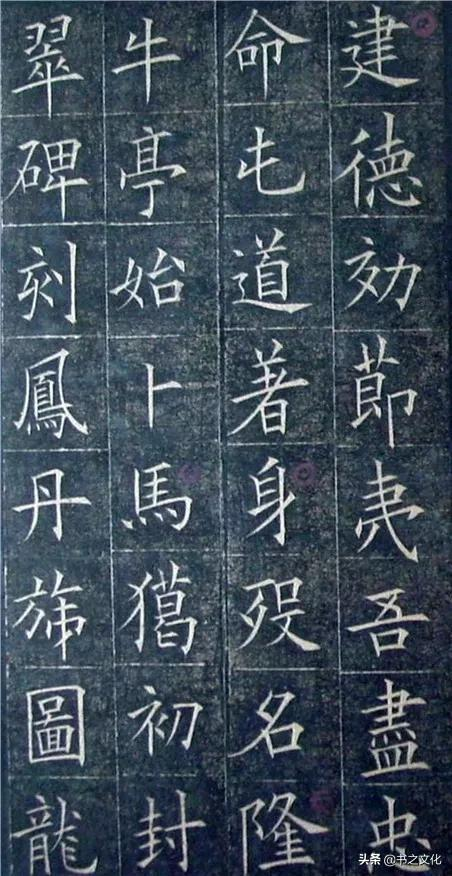 建德効節夷吾盡忠
命屯道著身歿名隆
牛亭始卜馬獦初封
翠碑刻鳳丹旆圖龍
头条 @书之文化